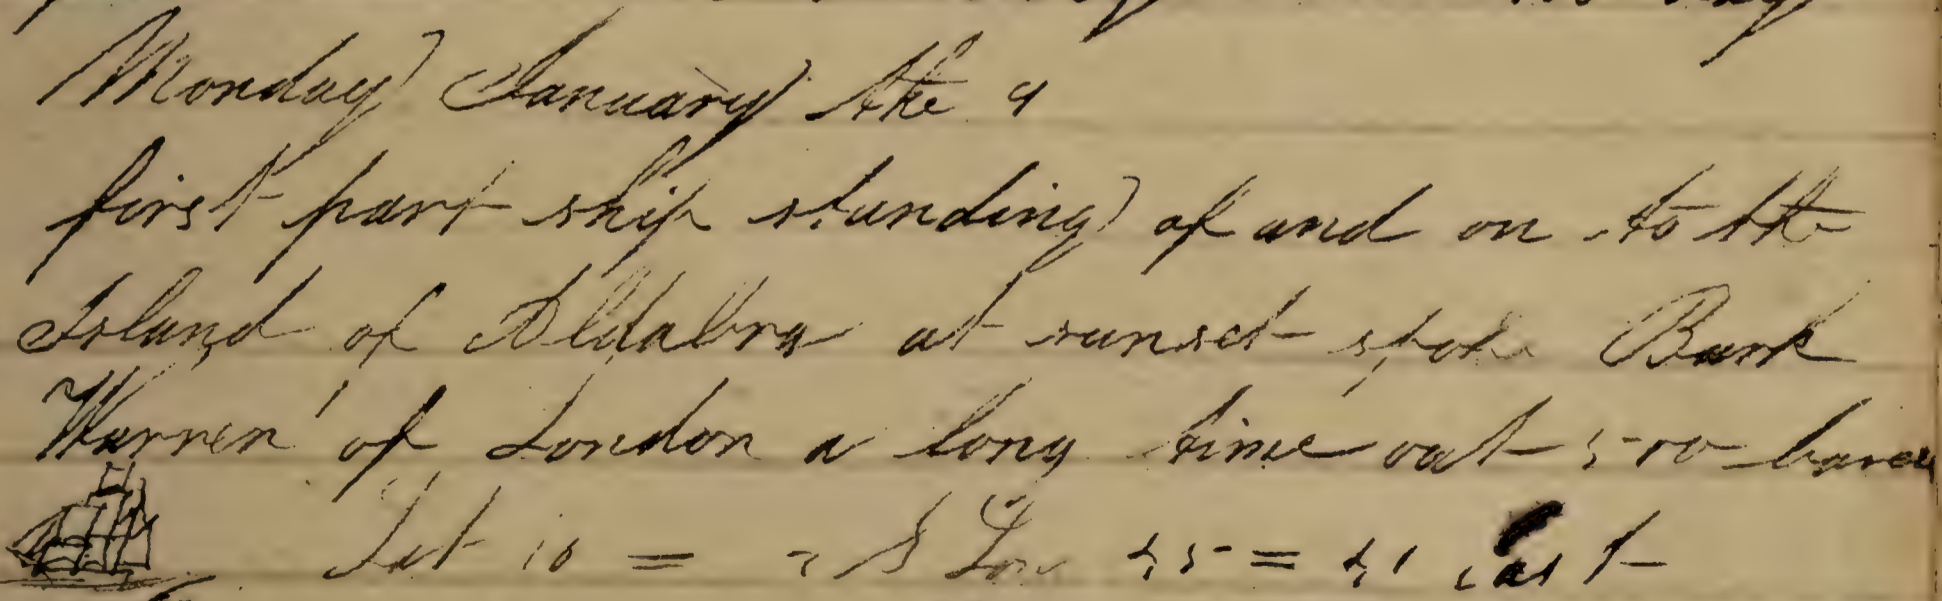 Monday January the 4
first part ship standing of and on to the
Island of Aldabra at sunset spoke Bark
Warren of London a long time out 500
Lat 10 = S Lon 45 = 41 east